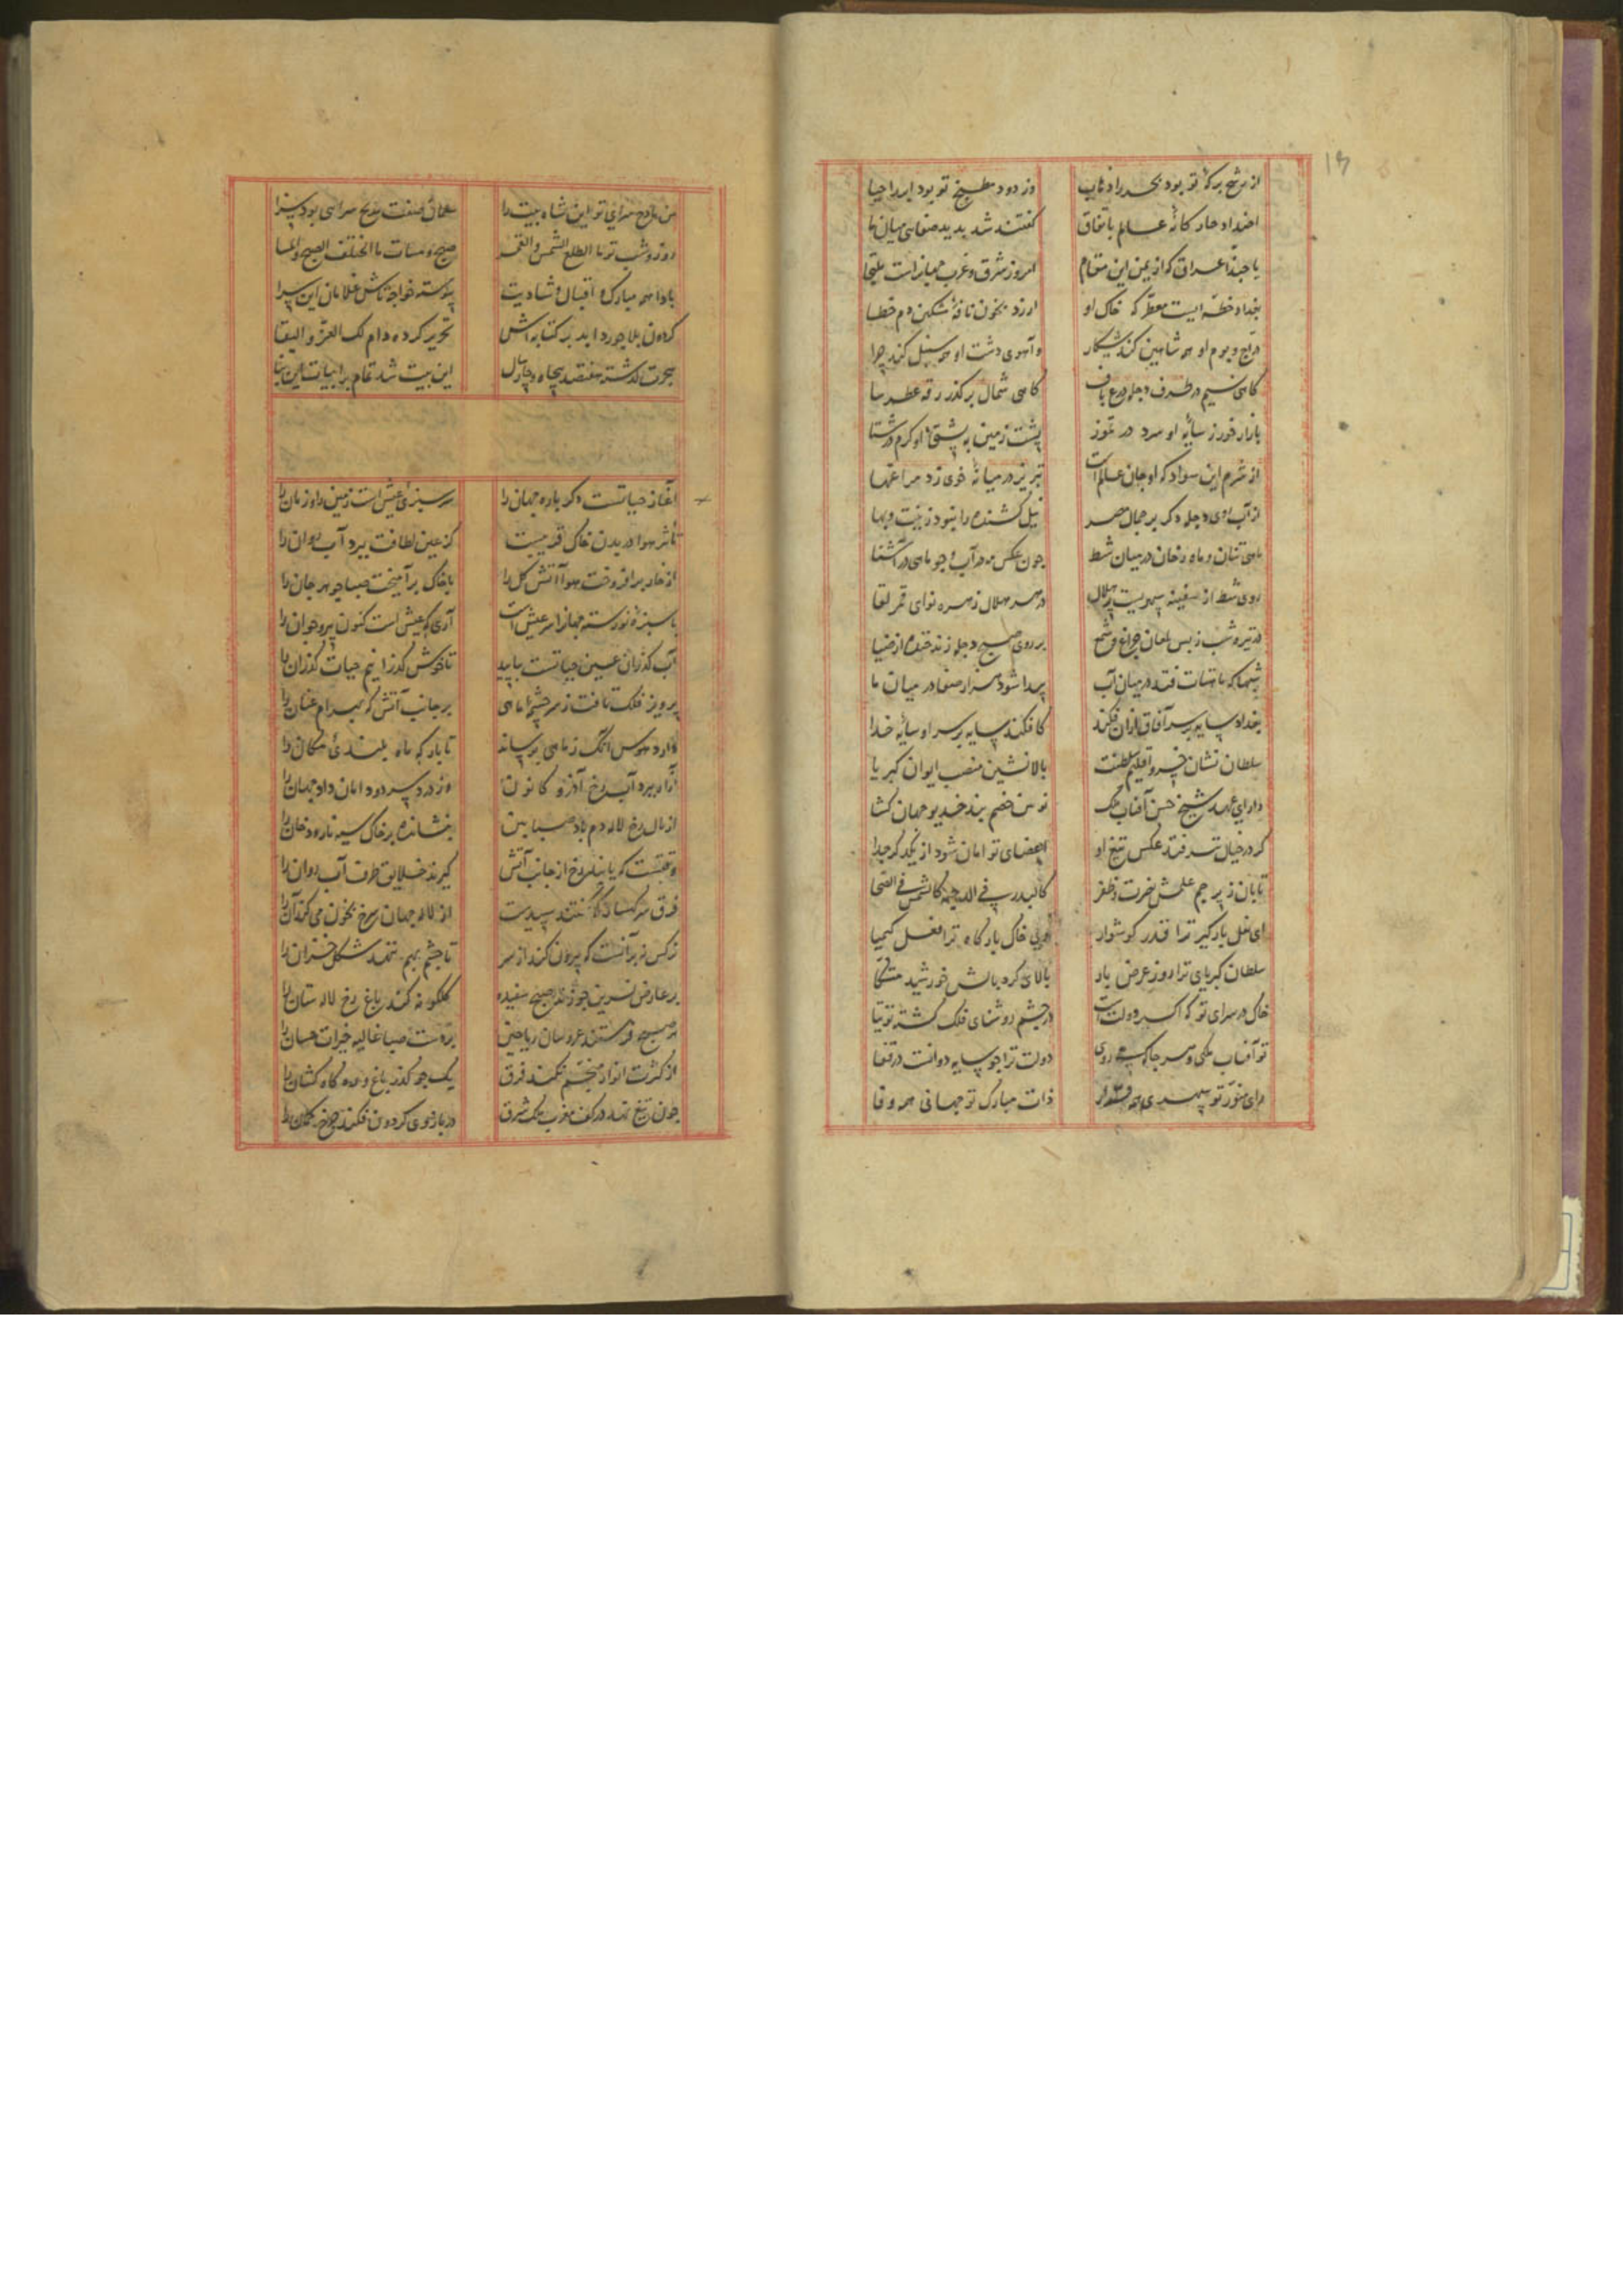 ۱۳
از رشح برکهٔ تو بود بحر را ذهاب وز دود مطبخ تو بود ابر را حیا
اضداد چار کانهٔ عالم باتفاق گفتند شد پدید صفایی میان ما
یا حبذا عراق که از یمن این مقام امروز شرق و غرب جهانراست ملتجا
بغداد خطه ایست معطر که خاک او ارزد بخون نافهٔ مشکین دم خطا
دراج و بوم او همه شاهین کند شکار و آهوی دشت او همه سنبل کند چرا
گاهی نسیم در طرف دجله درع باف گاهی شمال بر گذر رقه عطرسا
بازار خور ز سایهٔ او سرد در تموز پشت زمین به پشتی او گرم در شتا
از شرم این سواد که او جان عالم است تبریز در میانهٔ خوی زد مراغها
از آب روی دجله دگر بر جمال مصر نیل کشنده را نبود زینت و بها
ماهی تنان و ماه رخان در میان شط چون عکس مه در آب و چو ماهی در آشنا
روی شط از سفینه سپهریست پر هلال در هر هلال زهره نوای قمر لقا
در تیره شب ز بس لمعان چراغ و شمع بر روی صبح دجله زند خنده از ضیا
شبها که ماهتاب فتد در میان آب پیدا شود هزار صفا در میان ما
بغداد سایه بر سر آفاق ازان فکند کافکند سایه بر سر او سایهٔ خدا
سلطان نشان خسرو اقلیم سلطنت بالا نشین منصب ایوان کبریا
دارای عهد شیخ حسن آفتاب ملک نوئین خصم بند خدیو جهان گشا
گر در خیال تر فتد عکس تیغ او اعضای توامان شود از یکدگر جدا
تابان ز پرچم علمش نصرت و ظفر کالبدر فی الدجیه کالشمس فی الضحا
ای نعل بارگیر ترا قدر گوشوار خاک بارگاه ترا فعل کیمیا
سلطان کبریای ترا روز عرض بار بالای گرد بالش خورشید متکا
خاک در سرای تو کاکسیر دولت است در چشم روشنای فلک گشته توتیا
تو آفتاب ملکی و هر جا که میروی دولت ترا چو سایه دوانست در قفا
رای منور تو سپهری ذات مبارک تو جهانی همه وفا
من مادح سرای تو این شاه بیت را سلمان صفت مدیح سرایی بود سزا
روز و شب تو ما اطلع الشمس والقمر صبح و مسات ما اختلف الصبح والمسا
بادا همه مبارک و اقبال و شادیت پیوسته خواجه تاش غلامان این سرا
گردون بلاجورد ابد بر کتابه اش تحریر کرده دام لک العز و البقا
هجرت گذشته هفتصد پنجاه و چار سال این بیت شد تمام بر ابیات این بنا
آغاز حیاتست دگر باره جهان را سرسبزی عیش است زمین را و زمان را
تأثر هوا در بدن خاک قریبست کز عین لطافت ببرد آب روان را
از خار برافروخت هوا آتش گل را با خاک برآمیخت صبا جوهر جان را
با سبزهٔ نورسته جهانرا سر عیش است آری که عیش است کنون پیر و جوان را
آب گذران عین حیاتست بیایید تا خوش گذرانیم حیات گذران را
پرویز فلک تافت ز سرچشمه ماهی بر جانب آتش که بهرام عنان را
دارد هوس آنک ز ماهی برساند تا بار که ماه بلندی مکان را
ببرد آب رخ آذر و کانون وز درد سر دود امان داد جهان را
از لال رخ لاله دم باد صبا بین بنشانده بر خاک سیه نار و دخان را
وقتست که یابند رخ از جانب آتش گیرند خلایق طرف آب روان را
فرق سر کهسار که گفتند سپیدست از لاله جهان سرخ بخون می کند آن را
نرگس نه بر آنست که بیرون کند از سر تا چشم بهم نزند شکل خزان را
بر عارض نسرین چو زند صبح سفیده گلگونه کند باغ رخ لاله ستان را
هر صبح فرستند عروسان ریاحین بر دست صبا غالیه خیرات حسان را
از کثرت انوار منجم نکند فرق یک جو گذر باغ و ره کاهکشان را
چون تیغ نهد در کف مغرب ملک شرق در بازوی گردون فکند چرخ کمان را